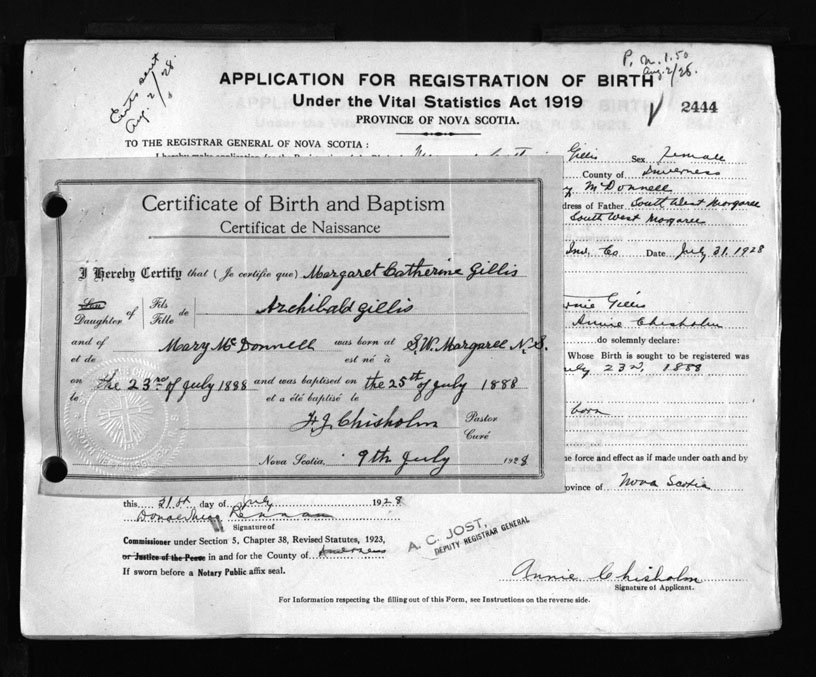 Certs sent
Aug. 2/28.
P. N. 1.50
Aug. 2/28.
APPLICATION FOR REGISTRATION OF BIRTH
Under the Vital Statistics Act 1919
PROVINCE OF NOVA SCOTIA.
2444
TO THE REGISTRAR GENERAL OF NOVA SCOTIA:
Gillis Sex Female
County of Inverness
McDonnell
dress of Father South West Margaree
South West Margaree
Inv. Co Date July 31, 1928
Certificate of Birth and Baptism
Certificat de Naissance
I Hereby Certify that (Je certifie que) Margaret Catherine Gillis
Son Daughter of Fils Fille de Archibald Gillis
and of et de Mary McDonnell was born at est né à S.W. Margaree N.S.
on le the 23rd of July 1888 and was baptised on et a été baptisé le the 25th of July 1888
H J Chisholm Pastor Curé
Nova Scotia, 9th July 1928
Annie Gillis
Annie Chisholm
do solemnly declare:
Whose Birth is sought to be registered was
July 23rd, 1888
born
me force and effect as if made under oath and by
rovince of Nova Scotia
this 31st day of July 1928
Signature of
Commissioner under Section 5, Chapter 38, Revised Statutes, 1923,
or Justice of the Peace in and for the County of Inverness
If sworn before a Notary Public affix seal.
A. C. JOST,
DEPUTY REGISTRAR GENERAL
Annie Chisholm
Signature of Applicant.
For Information respecting the filling out of this Form, see Instructions on the reverse side.